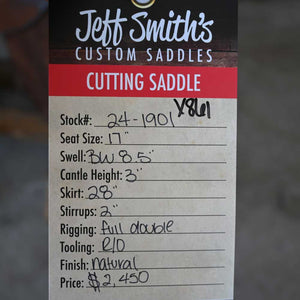 Jeff Smith's
CUSTOM SADDLES
CUTTING SADDLE
X861
Stock#: 24-1901
Seat Size: 17"
Swell: BW 8.5"
Cantle Height: 3"
Skirt: 28"
Stirrups: 2"
Rigging: full double
Tooling: R/O
Finish: natural
Price: $2,450